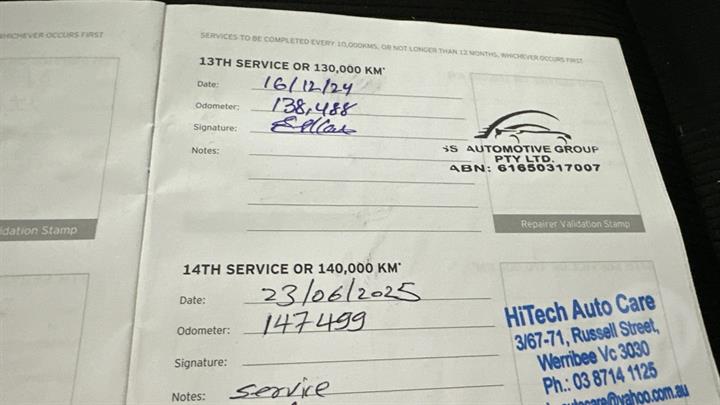 WHICHEVER OCCURS FIRST
SERVICES TO BE COMPLETED EVERY 10,000KMS, OR NOT LONGER THAN 12 MONTHS, WHICHEVER OCCURS FIRST
13TH SERVICE OR 130,000 KM*
Date: 16/12/24
Odometer: 138,488
Signature:
Notes:
SS AUTOMOTIVE GROUP
PTY LTD.
ABN: 61650317007
Repairer Validation Stamp
idation Stamp
14TH SERVICE OR 140,000 KM*
Date: 23/06/2025
Odometer: 147499
Signature:
Notes: service
HiTech Auto Care
3/67-71, Russell Street,
Werribee Vc 3030
Ph.: 03 8714 1125
autocare@yahoo.com.au